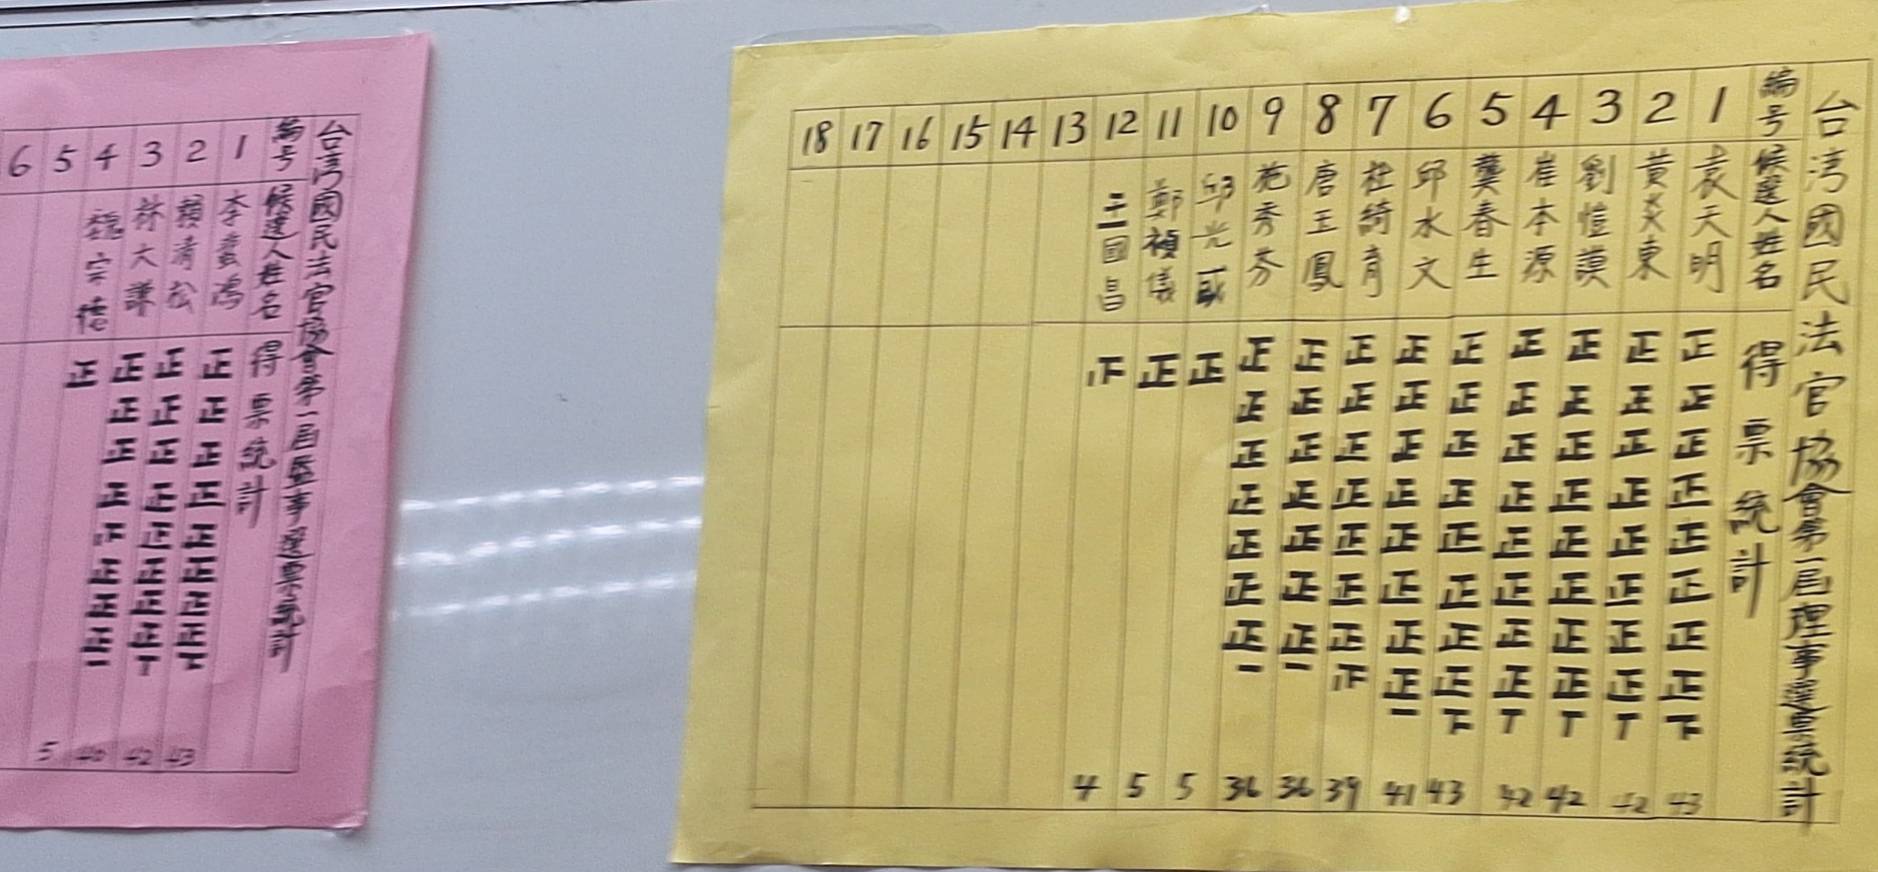 台湾國民法官協會第一屆理事選票統計
編号 候選人姓名 得票統計
1 袁天明 正正正正正正正正下 43
2 黃炎東 正正正正正正正正丅 42
3 劉愷謨 正正正正正正正正丅 42
4 崔本源 正正正正正正正正丅 42
5 龔春生 正正正正正正正正下 43
6 邱水文 正正正正正正正正一 41
7 杜綺育 正正正正正正正 39
8 唐玉鳳 正正正正正正正一 36
9 施秀芬 正正正正正正正一 36
10 邱光 正 5
11 鄭禎儀 正 5
12 王國昌 4
13
14
15
16
17
18
台湾國民法官協會第一屆監事選票統計
編号 候選人姓名 得票統計
1 李 鴻 正正正正正正正正 43
2 賴清松 正正正正正正正正丅 42
3 林大謙 正正正正 正正正一 40
4 魏宗德 正 5
5
6